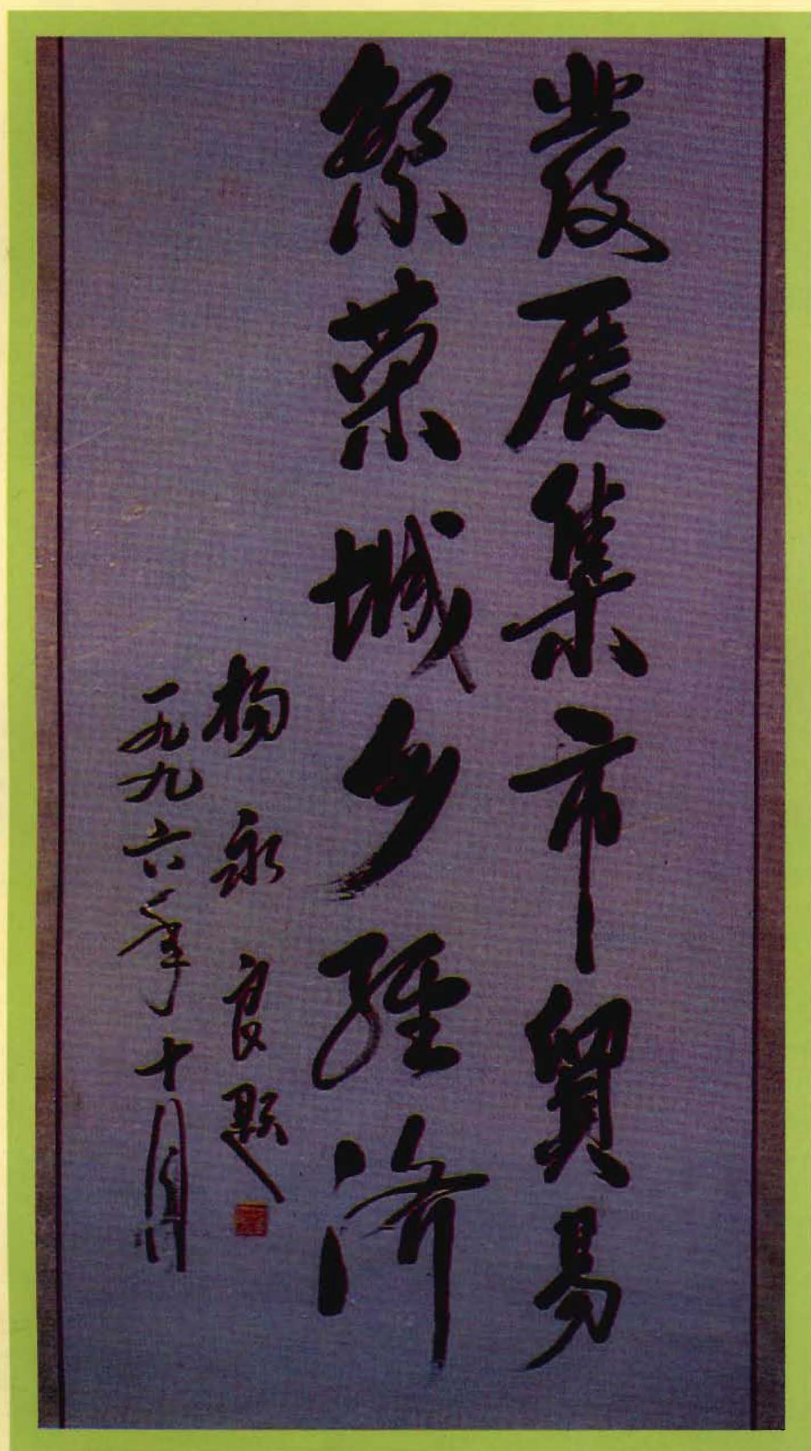 發展集市貿易
繁荣城乡經济
杨永良题
一九九六年十月